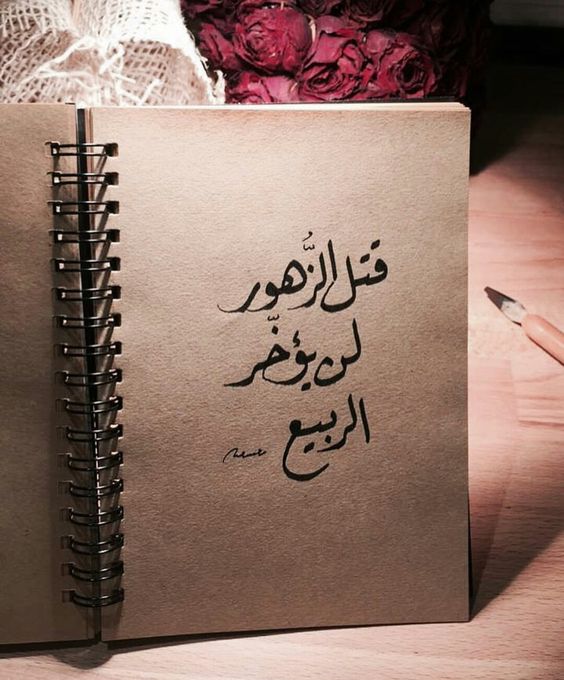 قتل الزُّهور
لن يؤخّر
الربيع